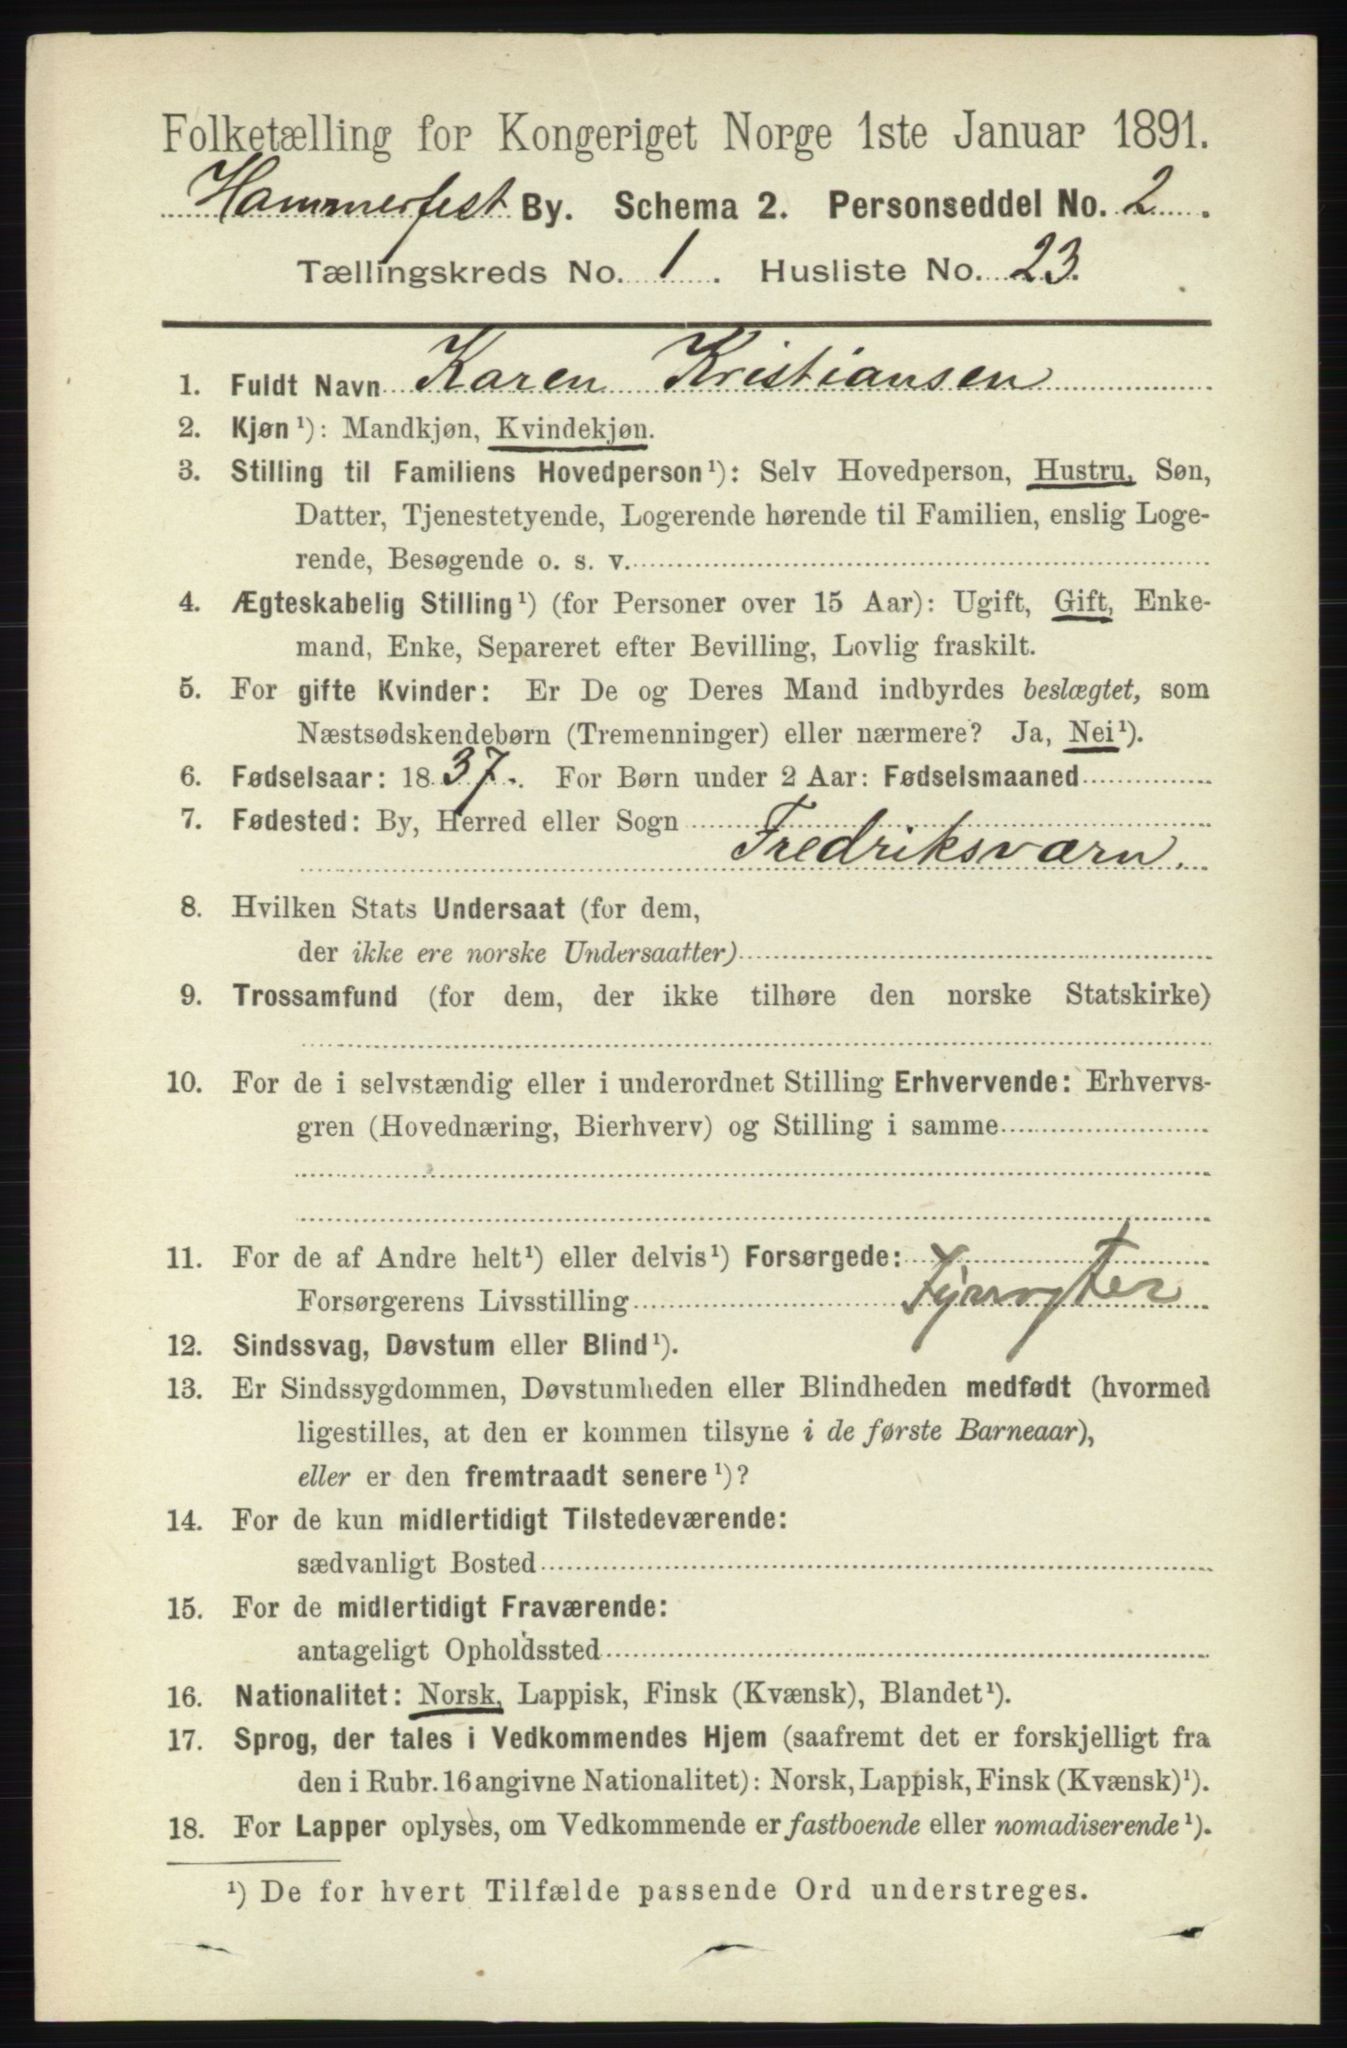 Folketælling for Kongeriget Norge 1ste Januar 1891.
Hammerfest By. Schema 2. Personseddel No. 2.
Tællingskreds No. 1. Husliste No. 23.
1. Fuldt Navn Karen Kristiansen
2. Kjøn¹): Mandkjøn, Kvindekjøn.
3. Stilling til Familiens Hovedperson¹): Selv Hovedperson, Hustru, Søn,
Datter, Tjenestetyende, Logerende hørende til Familien, enslig Loge-
rende, Besøgende o. s. v.
4. Ægteskabelig Stilling¹) (for Personer over 15 Aar): Ugift, Gift, Enke-
mand, Enke, Separeret efter Bevilling, Lovlig fraskilt.
5. For gifte Kvinder: Er De og Deres Mand indbyrdes beslægtet, som
Næstsødskendebørn (Tremenninger) eller nærmere? Ja, Nei¹).
6. Fødselsaar: 1837. For Børn under 2 Aar: Fødselsmaaned
7. Fødested: By, Herred eller Sogn
Fredriksværn.
8. Hvilken Stats Undersaat (for dem,
der ikke ere norske Undersaatter)
9. Trossamfund (for dem, der ikke tilhøre den norske Statskirke)
10. For de i selvstændig eller i underordnet Stilling Erhvervende: Erhvervs-
gren (Hovednæring, Bierhverv) og Stilling i samme
11. For de af Andre helt¹) eller delvis¹) Forsørgede:
Forsørgerens Livsstilling Fyrvogter
12. Sindssvag, Døvstum eller Blind¹).
13. Er Sindssygdommen, Døvstumheden eller Blindheden medfødt (hvormed
ligestilles, at den er kommen tilsyne i de første Barneaar),
eller er den fremtraadt senere¹)?
14. For de kun midlertidigt Tilstedeværende:
sædvanligt Bosted
15. For de midlertidigt Fraværende:
antageligt Opholdssted
16. Nationalitet: Norsk, Lappisk, Finsk (Kvænsk), Blandet¹).
17. Sprog, der tales i Vedkommendes Hjem (saafremt det er forskjelligt fra
den i Rubr. 16 angivne Nationalitet): Norsk, Lappisk, Finsk (Kvænsk)¹).
18. For Lapper oplyses, om Vedkommende er fastboende eller nomadiserende¹).
¹) De for hvert Tilfælde passende Ord understreges.